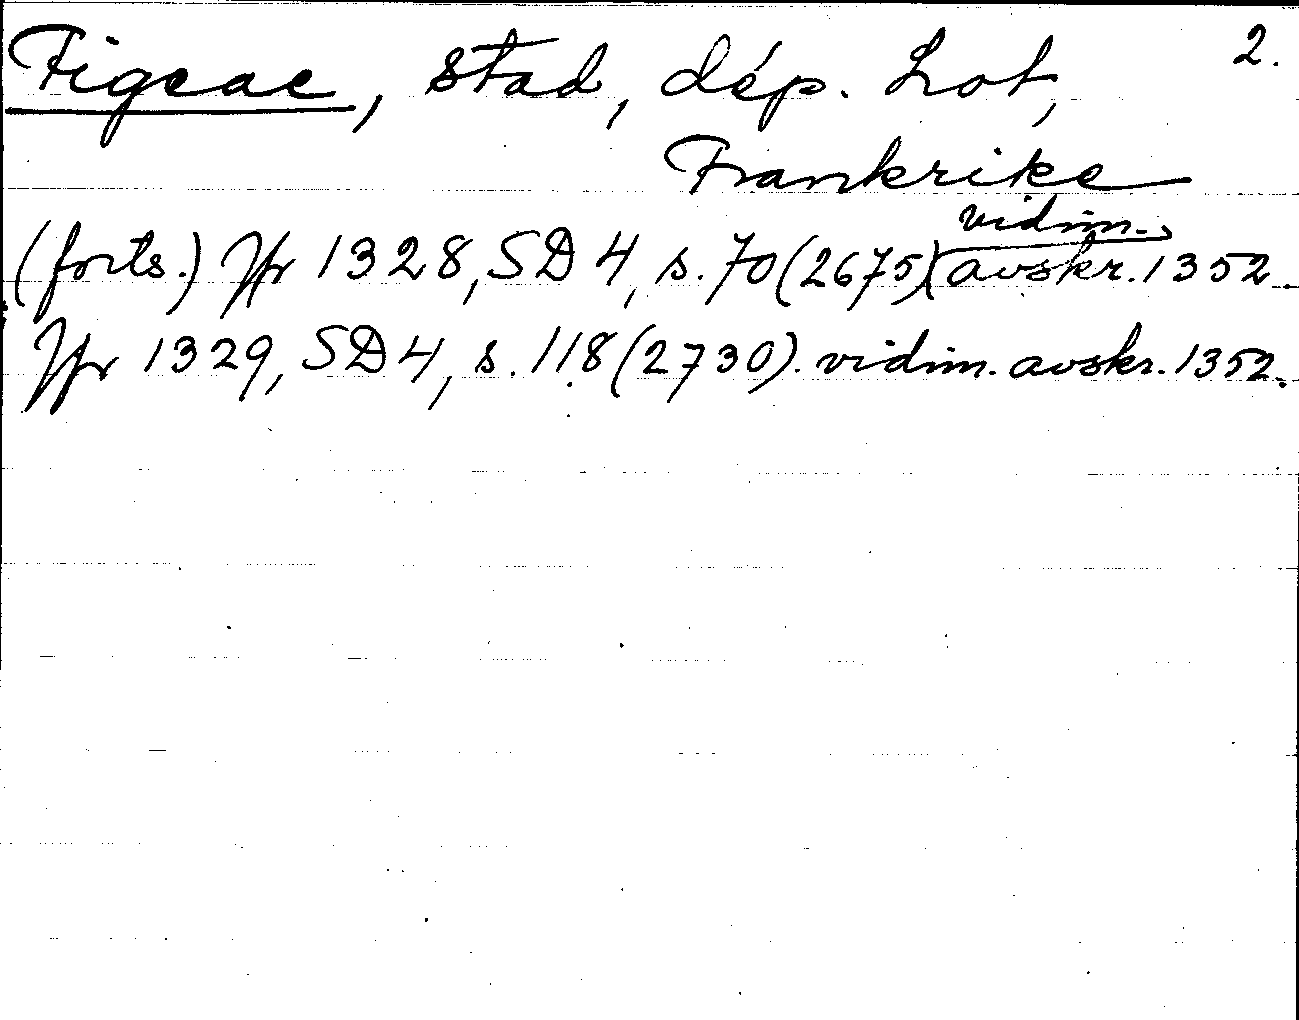 Figeac, stad, dép. Lot, 2.
Frankrike
(forts.) Jfr 1328, SD 4, s. 70 (2675) vidim. avskr. 1352.
Jfr 1329, SD 4, s. 118 (2730). vidim. avskr. 1352.